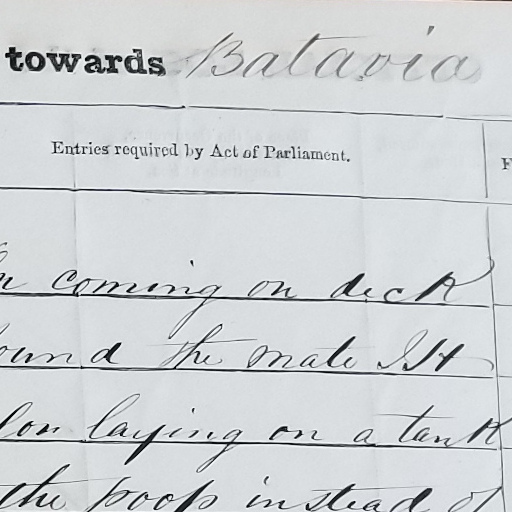 towards Batavia
Entries required by Act of Parliament.
coming on deck
the mate
laying on a tank
the poop instead of